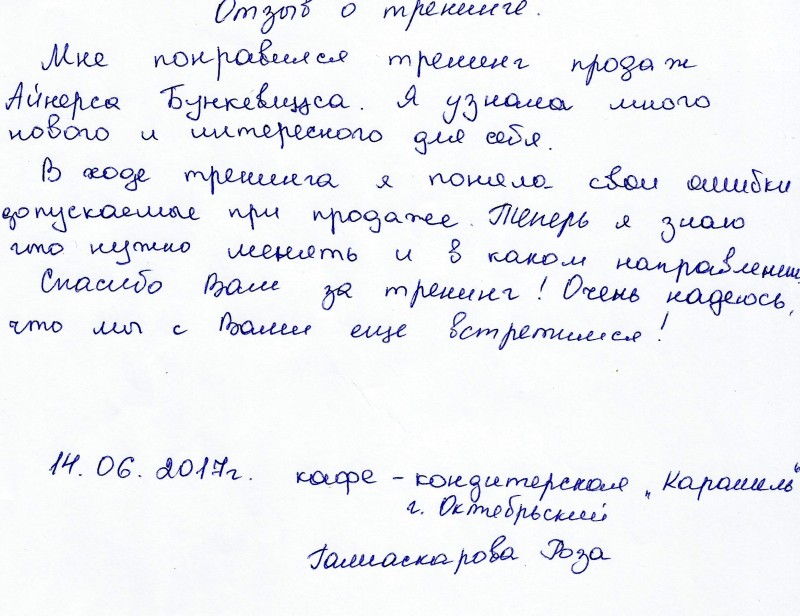 Отзыв о тренинге.
Мне понравился тренинг продаж
Айнерса Бункевицса. Я узнала много
нового и интересного для себя.
В ходе тренинга я поняла свои ошибки
допускаемые при продаже. Теперь я знаю
что нужно менять и в каком направлении.
Спасибо Вам за тренинг! Очень надеюсь,
что мы с Вами еще встретимся!
14.06.2017г. кафе - кондитерская „Карамель“
г. Октябрьский
Галиаскарова Роза